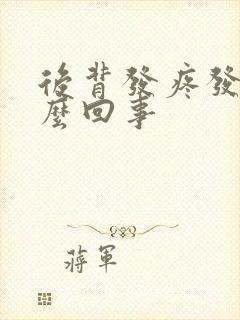 後背發疼發
麼回事
蔣軍